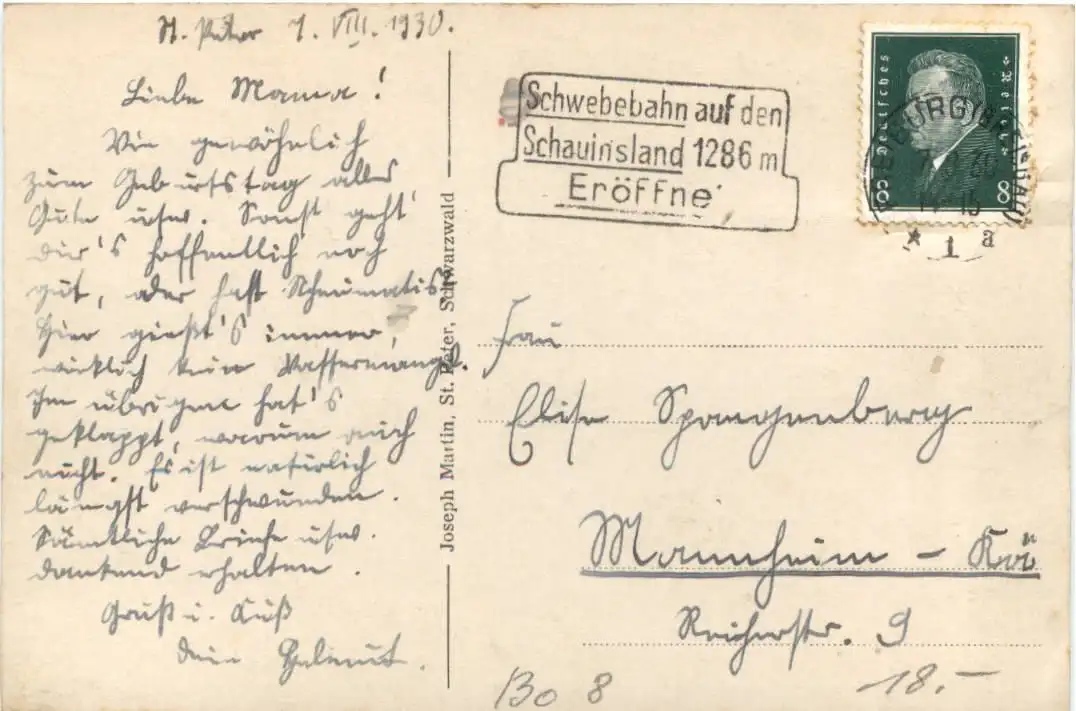 St. Peter 7. VIII. 1930.
Liebe Mama!
Wie gewöhnlich
zum Geburtstag alles
Gute usw. Sonst geht
dir's hoffentlich noch
gut, oder hast Rheumatis.
Hier gießt's immer,
wirklich kein Wassermangel.
Im übrigen hat's
geklappt, warum auch
nicht. Es ist natürlich
längst verschwunden.
Sämtliche Briefe usw.
dankend erhalten.
Gruß u. Kuß
dein Helmut.
Joseph Martin, St. Peter, Schwarzwald
Schwebebahn auf den
Schauinsland 1286 m
Eröffne
Deutsches Reich
8 8
FREIBURG (BREISGAU)
* 1 a
Frau
Elise Spangenberg
Mannheim - Kä
Reiherstr. 9
130 8
18.-